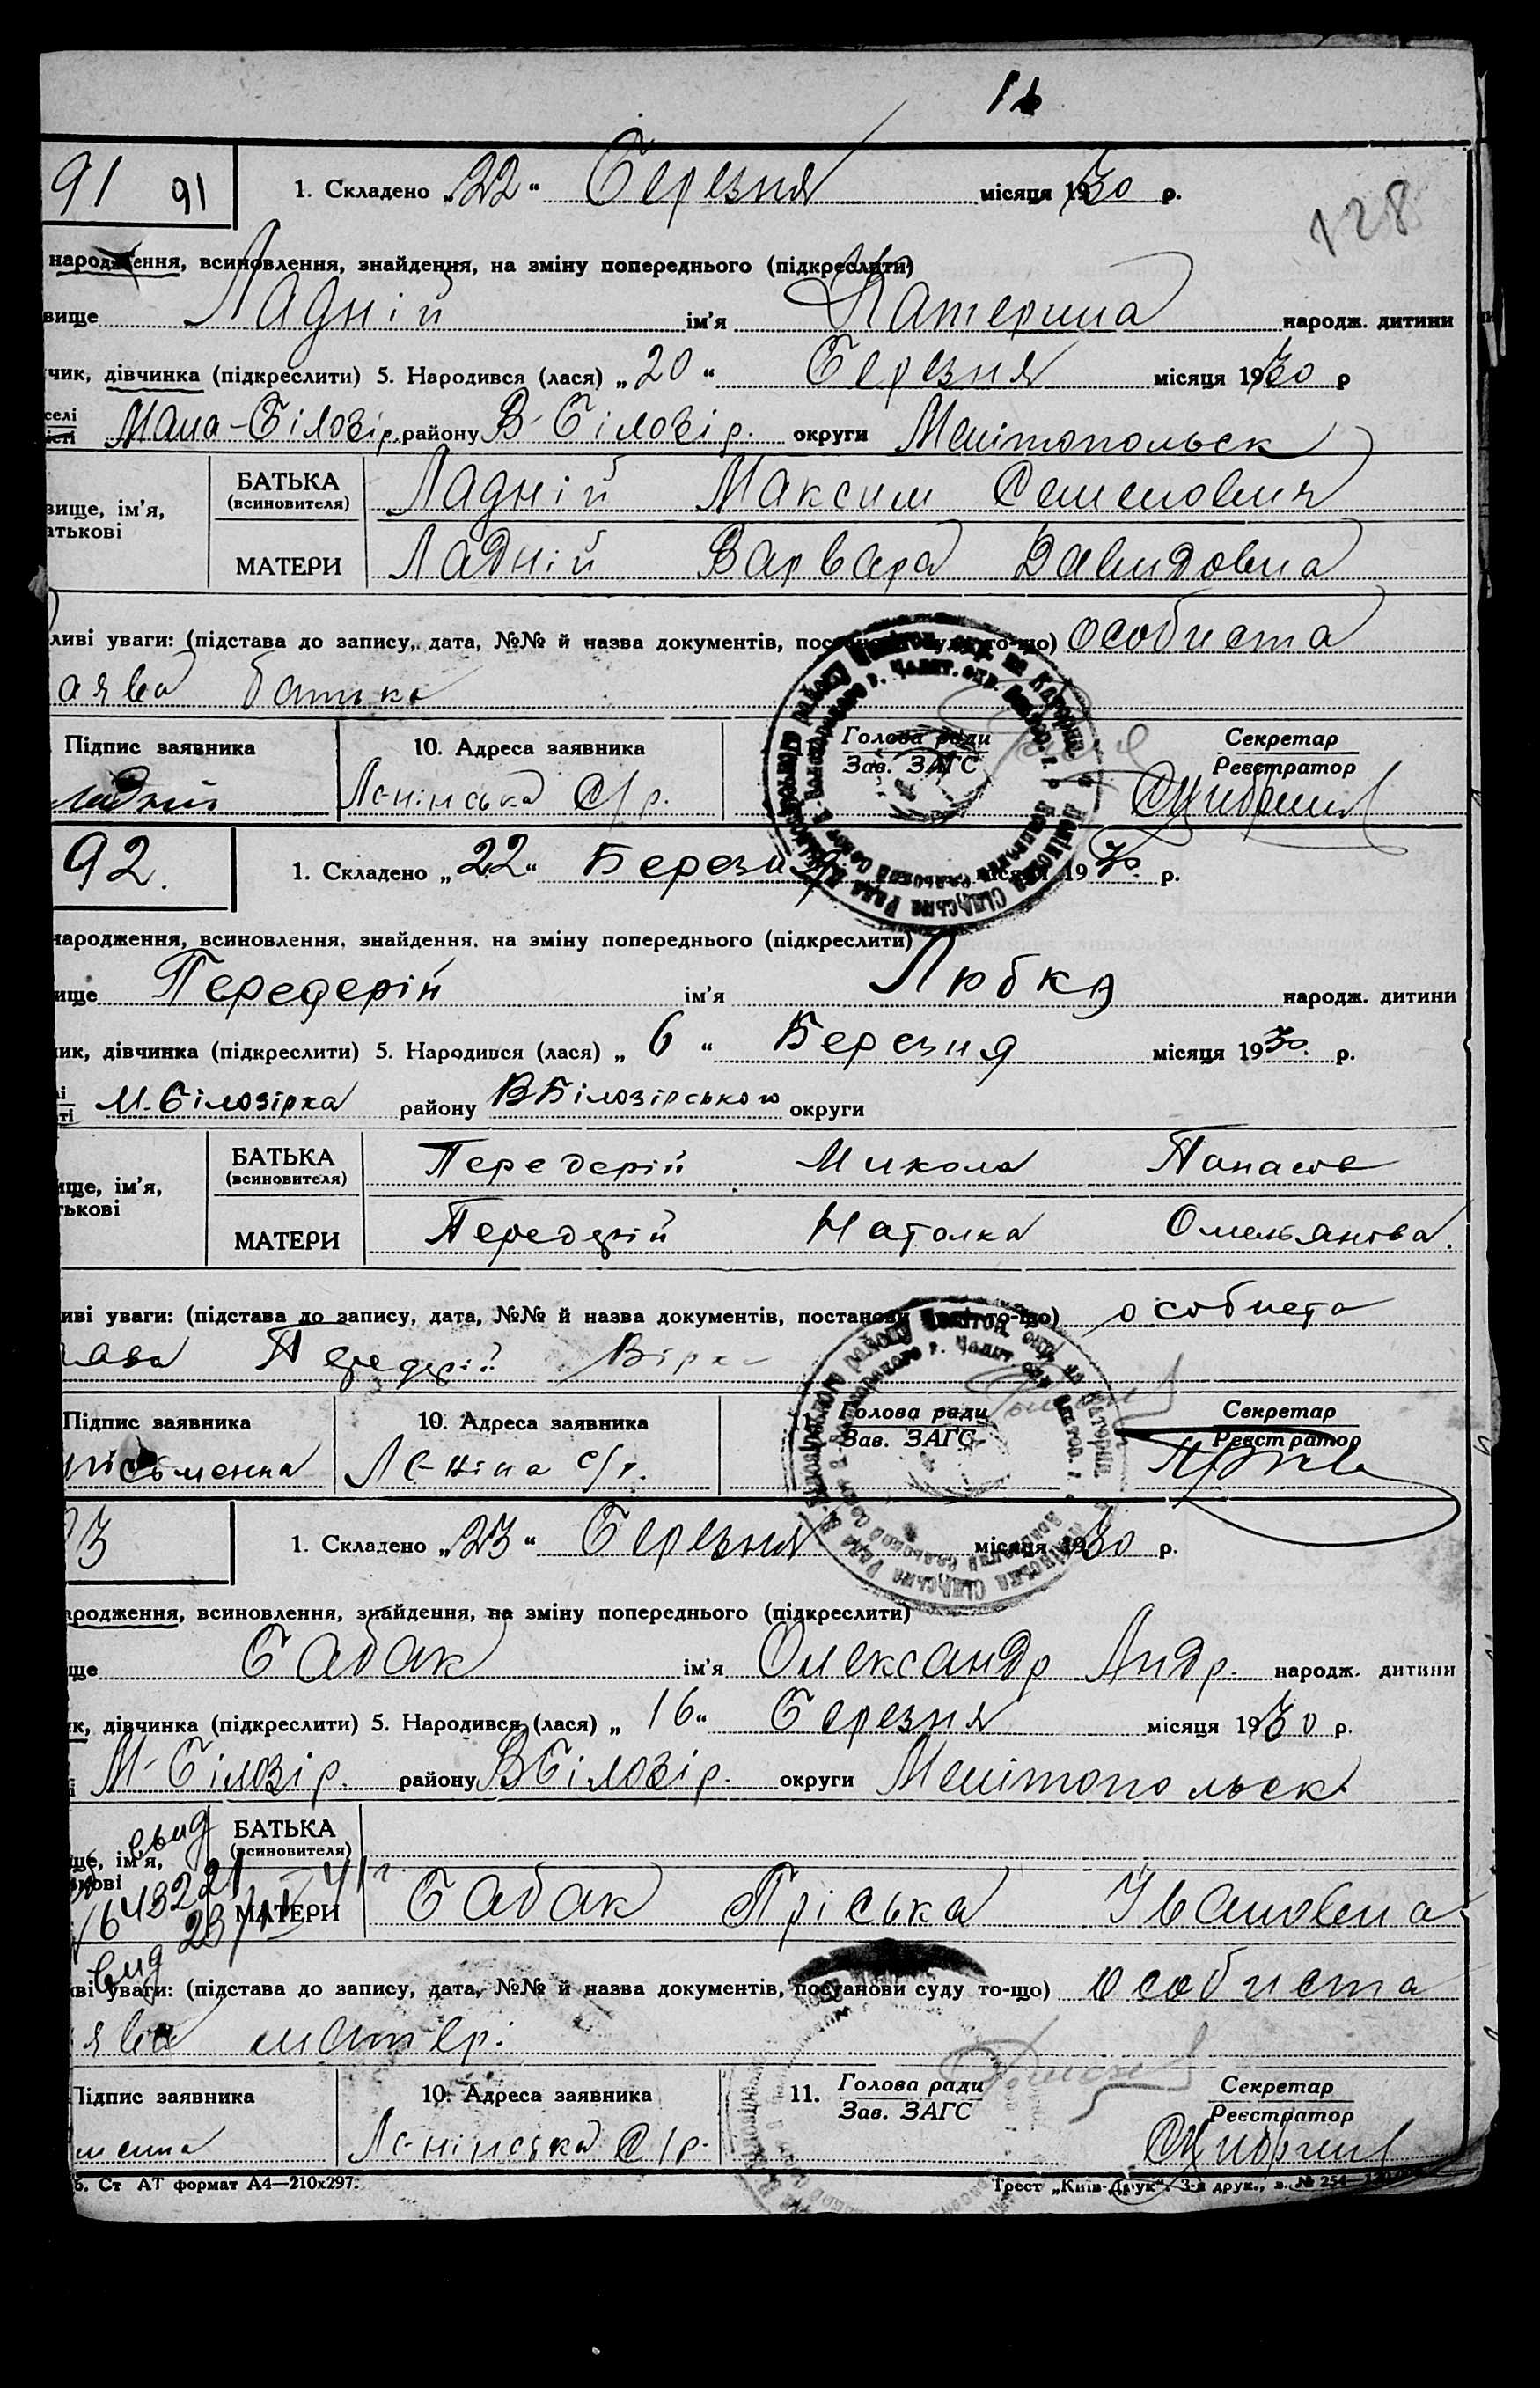 91 91 1. Складено „22“ Березня місяця 1930 р.
128
народження, всиновлення, знайдення, на зміну попереднього (підкреслити)
вище Ладній ім'я Катерина народж. дитини
чик, дівчинка (підкреслити) 5. Народився (лася) „20“ Березня місяця 1930 р
селі
Мало-Білозір. району В-Білозір. округи Мелітопольськ
БАТЬКА
(всиновителя) Ладній Максим Семенович
вище, ім'я,
атькові
МАТЕРИ Ладній Варвара Давидовна
ливі уваги: (підстава до запису, дата, №№ й назва документів, то-що) особиста
аява батька
Підпис заявника 10. Адреса заявника Голова ради Секретар
Зав. ЗАГС Реєстратор
Ладній Ленінська С/р.
92. 1. Складено „22“ Березня місяця 1930 р.
народження, всиновлення, знайдення, на зміну попереднього (підкреслити)
ище Передерій ім'я Любка народж. дитини
ик, дівчинка (підкреслити) 5. Народився (лася) „6“ Березня місяця 1930. р.
М-Білозірка району ВБілозірського округи
БАТЬКА
(всиновителя) Передерій Микола Панасов
ище, ім'я,
тькові
МАТЕРИ Передерій Наталка Омельянова.
иві уваги: (підстава до запису, дата, №№ й назва документів, постанови то-що) особиста
Передерій
Підпис заявника 10. Адреса заявника Голова ради Секретар
Зав. ЗАГС Реєстратор
письменна Леніна с/р.
93 1. Складено „23“ Березня місяця 1930 р.
ародження, всиновлення, знайдення, на зміну попереднього (підкреслити)
ще Бабак ім'я Олександр Андр. народж. дитини
ик, дівчинка (підкреслити) 5. Народився (лася) „16“ Березня місяця 1930 р.
М-Білозір. району ВБілозір. округи Мелітопольськ
БАТЬКА
(всиновителя)
ще, ім'я,
ькові
МАТЕРИ Бабак Пріська Івановна
иві уваги: (підстава до запису, дата, №№ й назва документів, постанови суду то-що) особиста
ява матері
Підпис заявника 10. Адреса заявника 11. Голова ради Секретар
Зав. ЗАГС Реєстратор
Ленінська С/р.
б. Ст АТ формат А4—210х297. Трест „Київ-Друк“. 3-я друк., з. № 254